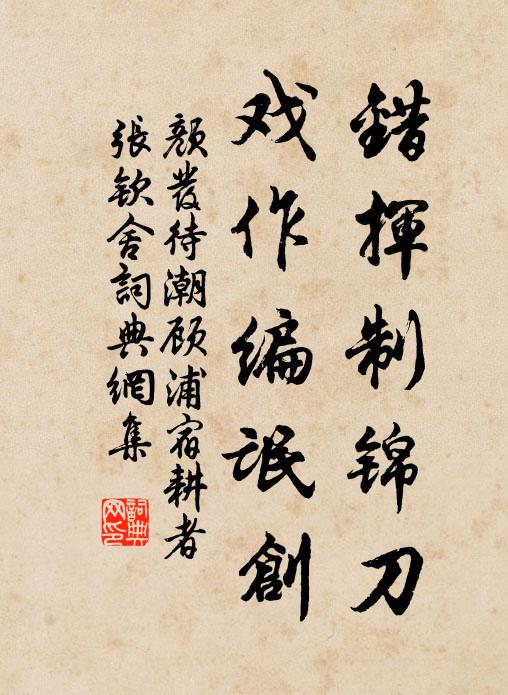 錯揮制锦刀
戏作编氓創
颜發待潮顾浦宿耕者
張欽舍詞典網集
詞典
网印